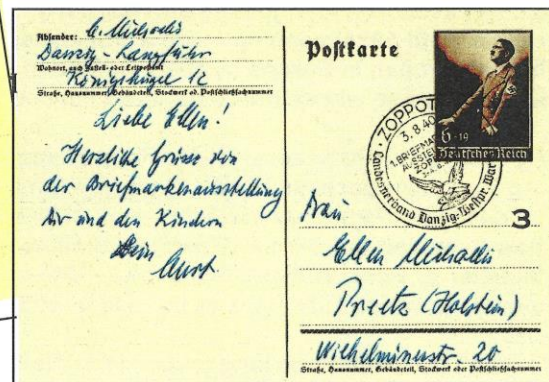 Absender: C. Michaelis
Danzig-Langfuhr
Wohnort, auch Zustell- oder Leitpostamt
Königshügel 12
Straße, Hausnummer, Gebäudeteil, Stockwerk od. Postschließfachnummer
Liebe Ellen!
Herzliche Grüsse von
der Briefmarkenausstellung
Dir und den Kindern
Dein
Curt
Postkarte
6+19
Deutsches Reich
ZOPPOT
3.8.40
1. BRIEFMARKEN
Landesverband Danzig-Westpr.
3
Frau
Ellen Michaelis
Preetz (Holstein)
Wilhelminenstr. 20
Straße, Hausnummer, Gebäudeteil, Stockwerk oder Postschließfachnummer